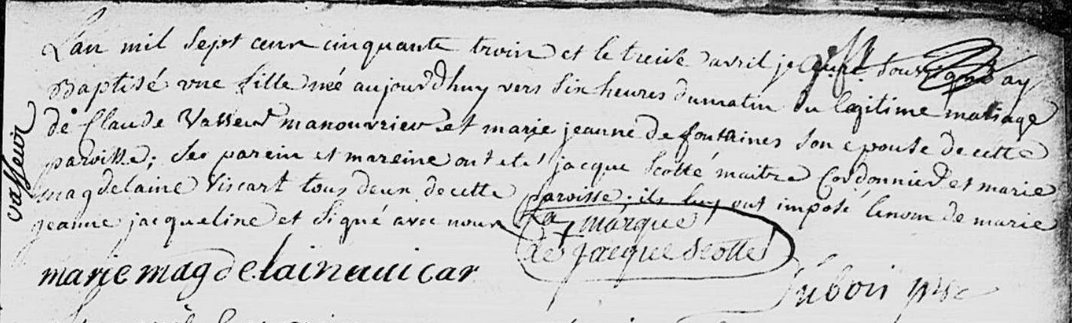 L'an mil sept cens cinquante trois et le treise d'avril je curé soussigné ay
Baptisé une fille née aujourd'huy vers six heures du matin du legitime mariage
de Claude Vasseur manouvrier et marie jeanne de fontaines son epouse de cette
paroisse; ses parein et mareine ont eté jacque Scotté maitre Cordonnier et marie
magdelaine Viscart tous deux de cette paroisse; ils luy ont imposé le nom de marie
jeanne jacqueline et signé avec nous
vasseur
La marque
de jacque Scotte
marie magdelaina uicar
Dubois